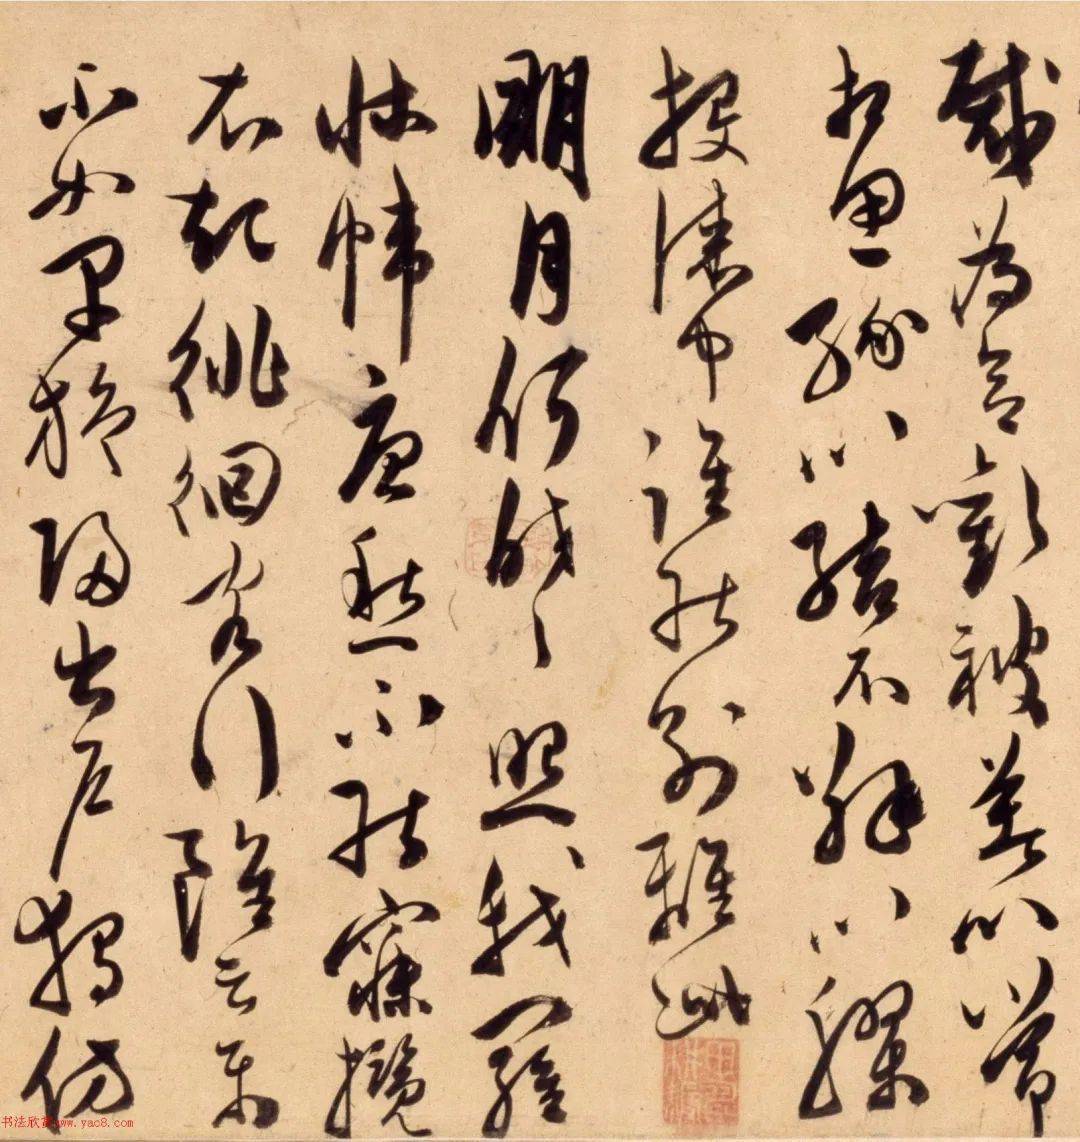 裁為合歡被著以常
相思緣以結不解以膠
投漆中誰能別離此
明月何皎〻照我羅
牀幃憂愁不能寐攬
衣起徘徊客行雖云樂
不如早旋歸出戶獨彷
书法欣赏www.yac8.com